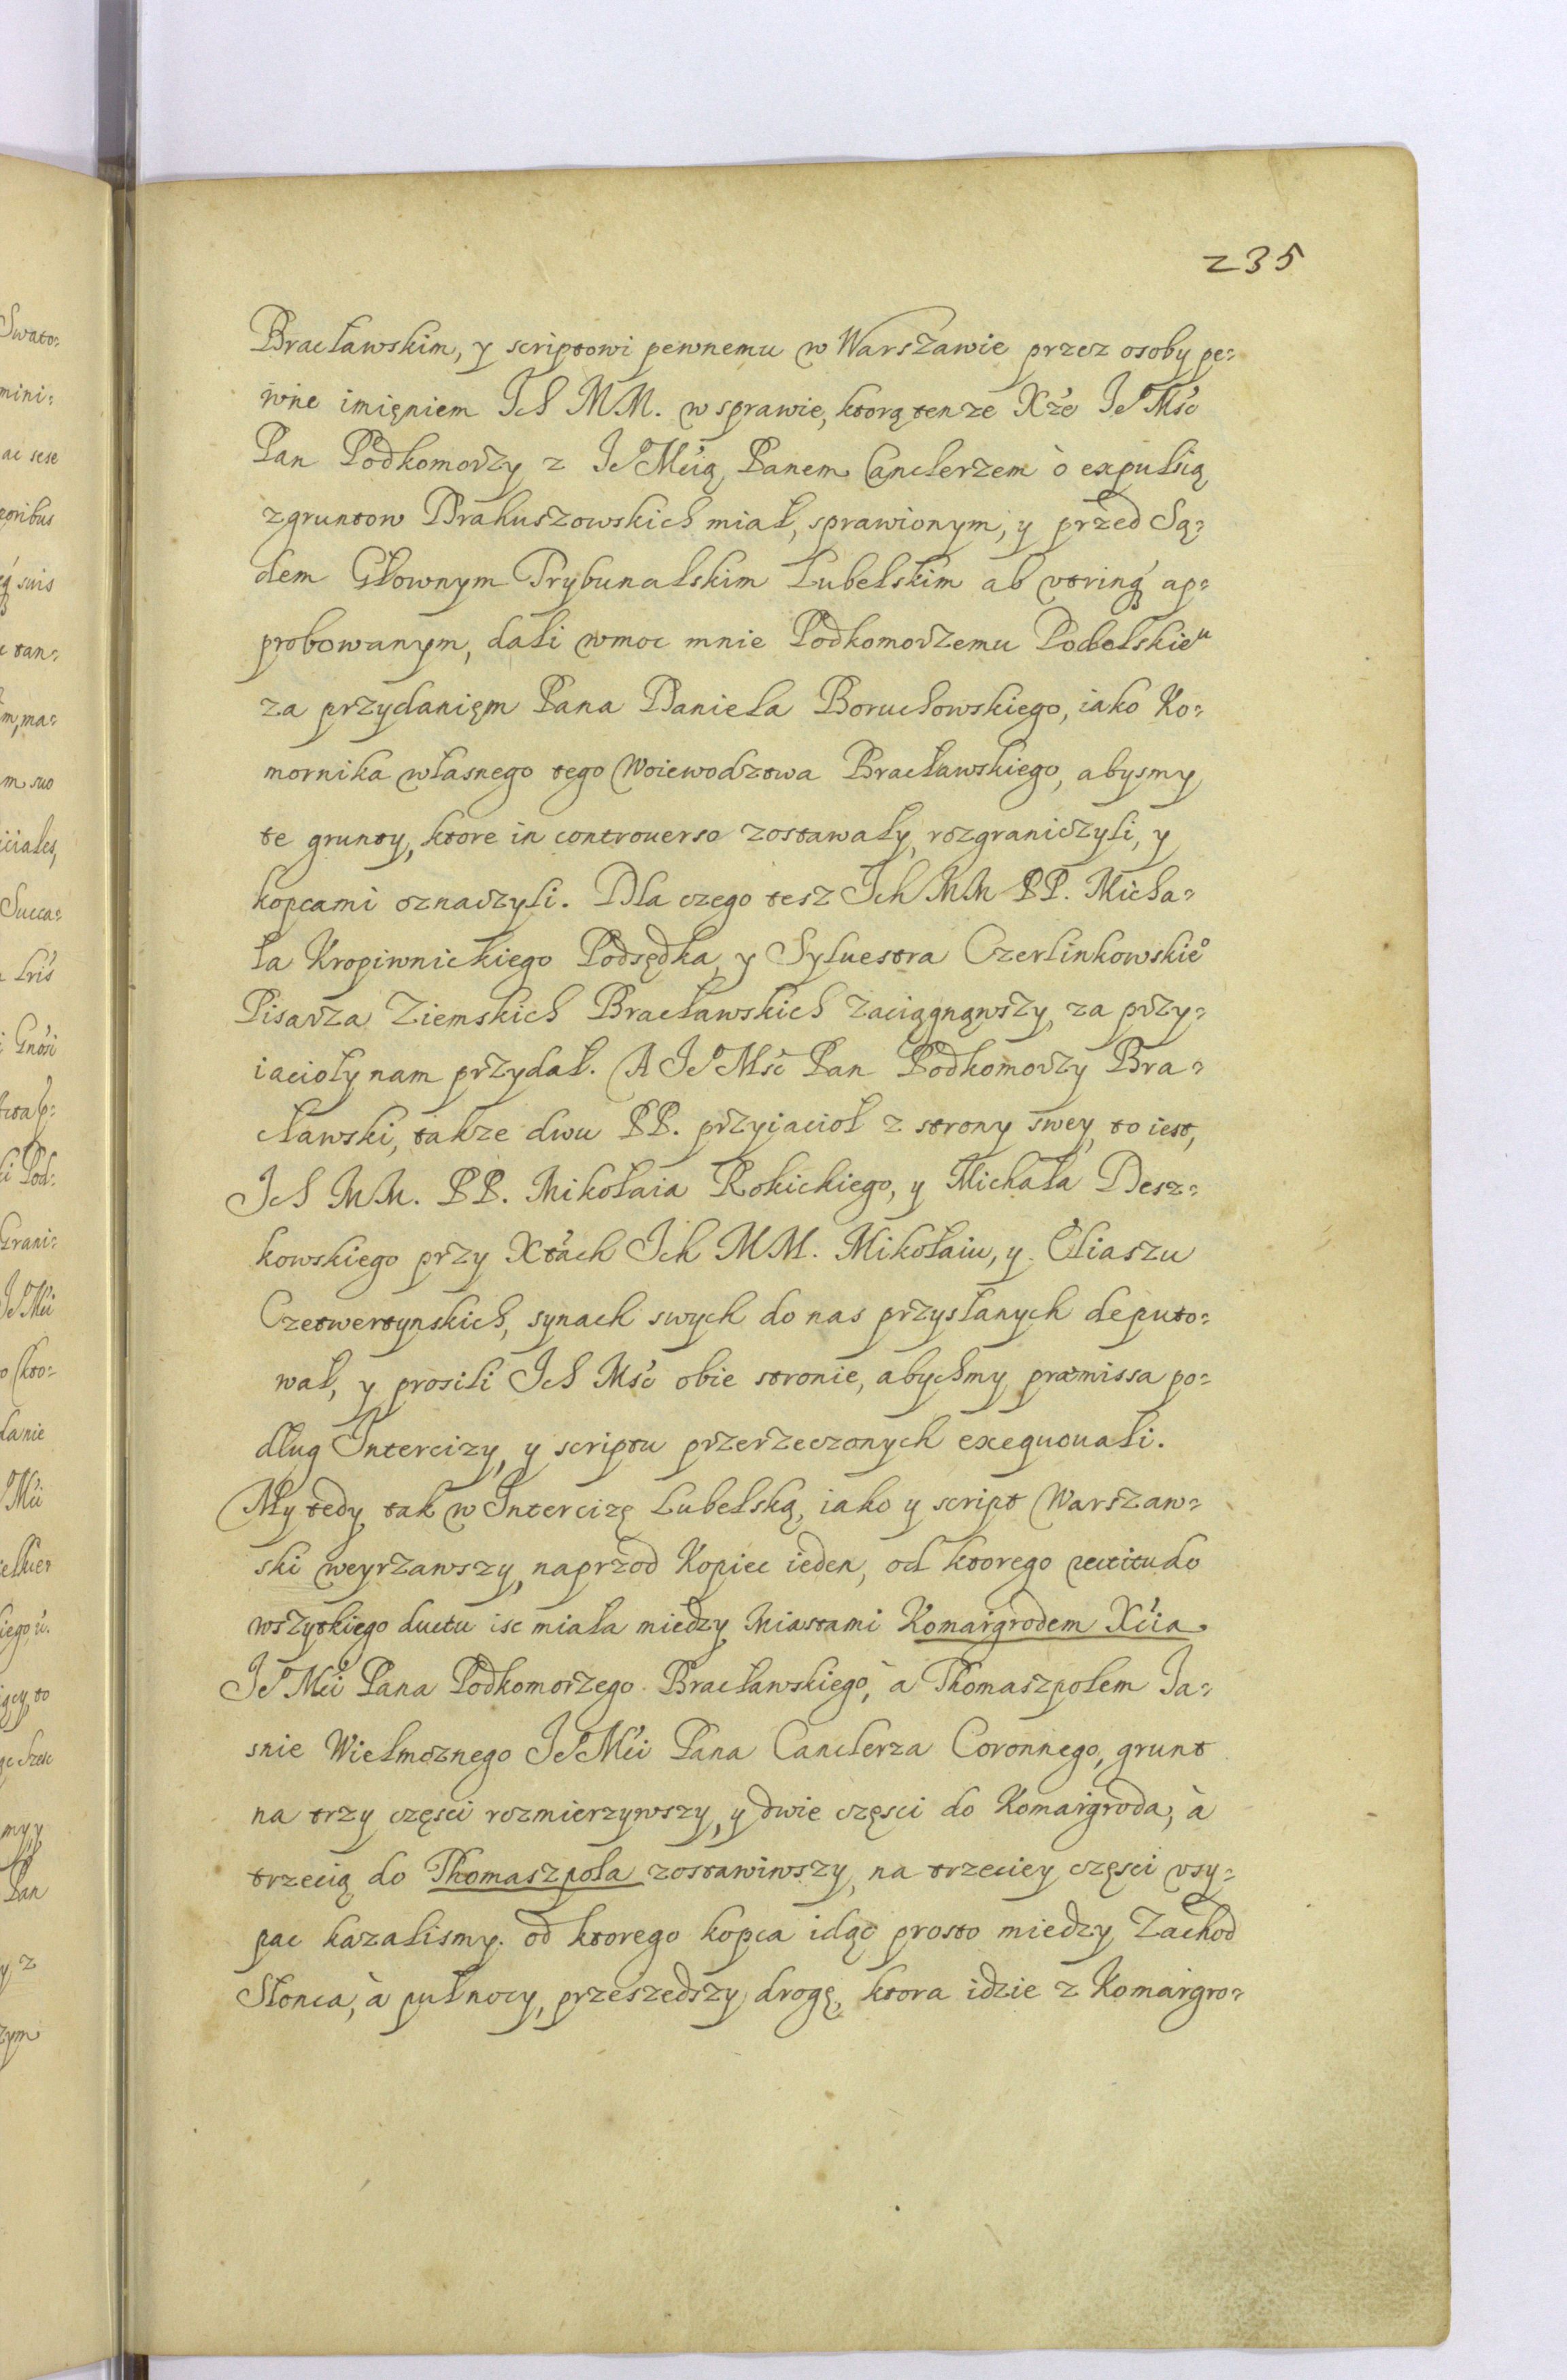 235
Bracławskim, y scriptowi pewnemu w Warszawie przez osoby pe=
wne imięniem Ich MM. w sprawie, ktorą tenze Xże Je° Mść
Pan Podkomorzy z Je° Mcią Panem Canclerzem ò expulsią
z gruntow Drakuszowskich miał, sprawionym, y przed Są=
dem Głownym Trybunalskim Lubelskim ab vtrinq́ ap=
probowanym, dali w moc mnie Podkomorzemu Podolskieᵘ
za przydanięm Pana Daniela Boruchowskiego, iako Ko=
mornika własnego tego Woiewodztwa Bracławskiego, abysmy
te grunty, ktore in controuerso zostawały, rozgraniczyli, y
kopcami oznaczyli. Dla czego tesz Ich MM PP. Micha=
ła Kropiwnickiego Podsędka, y Syluestra Czerlinkowskie°
Pisarza Ziemskich Bracławskich zaciągnąwszy, za przy=
iacioły nam przydał. A Je° Mść Pan Podkomorzy Bra=
cławski, takze dwu PP. przyiacioł z strony swey, to iest,
Ich MM. PP. Mikołaia Rokickiego, y Michała Desz=
kowskiego przy Xtách Ich MM. Mikołaiu, y Eliaszu
Czetwertynskich, synach swych do nas przysłanych deputo=
wał, y prosili Ich Mść obie stronie, abychmy præmissa po=
dług Intercizy, y scriptu przerzeczonych exequouali.
My tedy tak w Intercizę Lubelską, iako y script Warszaw=
ski weyrzawszy, naprzod Kopiec ieden, od ktorego rectitudo
wszytkiego ductu isc miała miedzy Miastami Komargrodem Xcia
Je° Mći Pana Podkomorzego Bracławskiego, à Thomaszpolem Ja=
snie Wielmoznego Je° Mći Pana Canclerza Coronnego, grunt
na trzy częsci rozmierzywszy, y dwie częsci do Komargroda, à
trzecią do Thomaszpola zostawiwszy, na trzeciey częsci vsy=
pac kazalismy. od ktorego kopca idąc prosto miedzy Zachod
Słonca, à pułnocy, przeszedszy drogę, ktora idzie z Komargro=